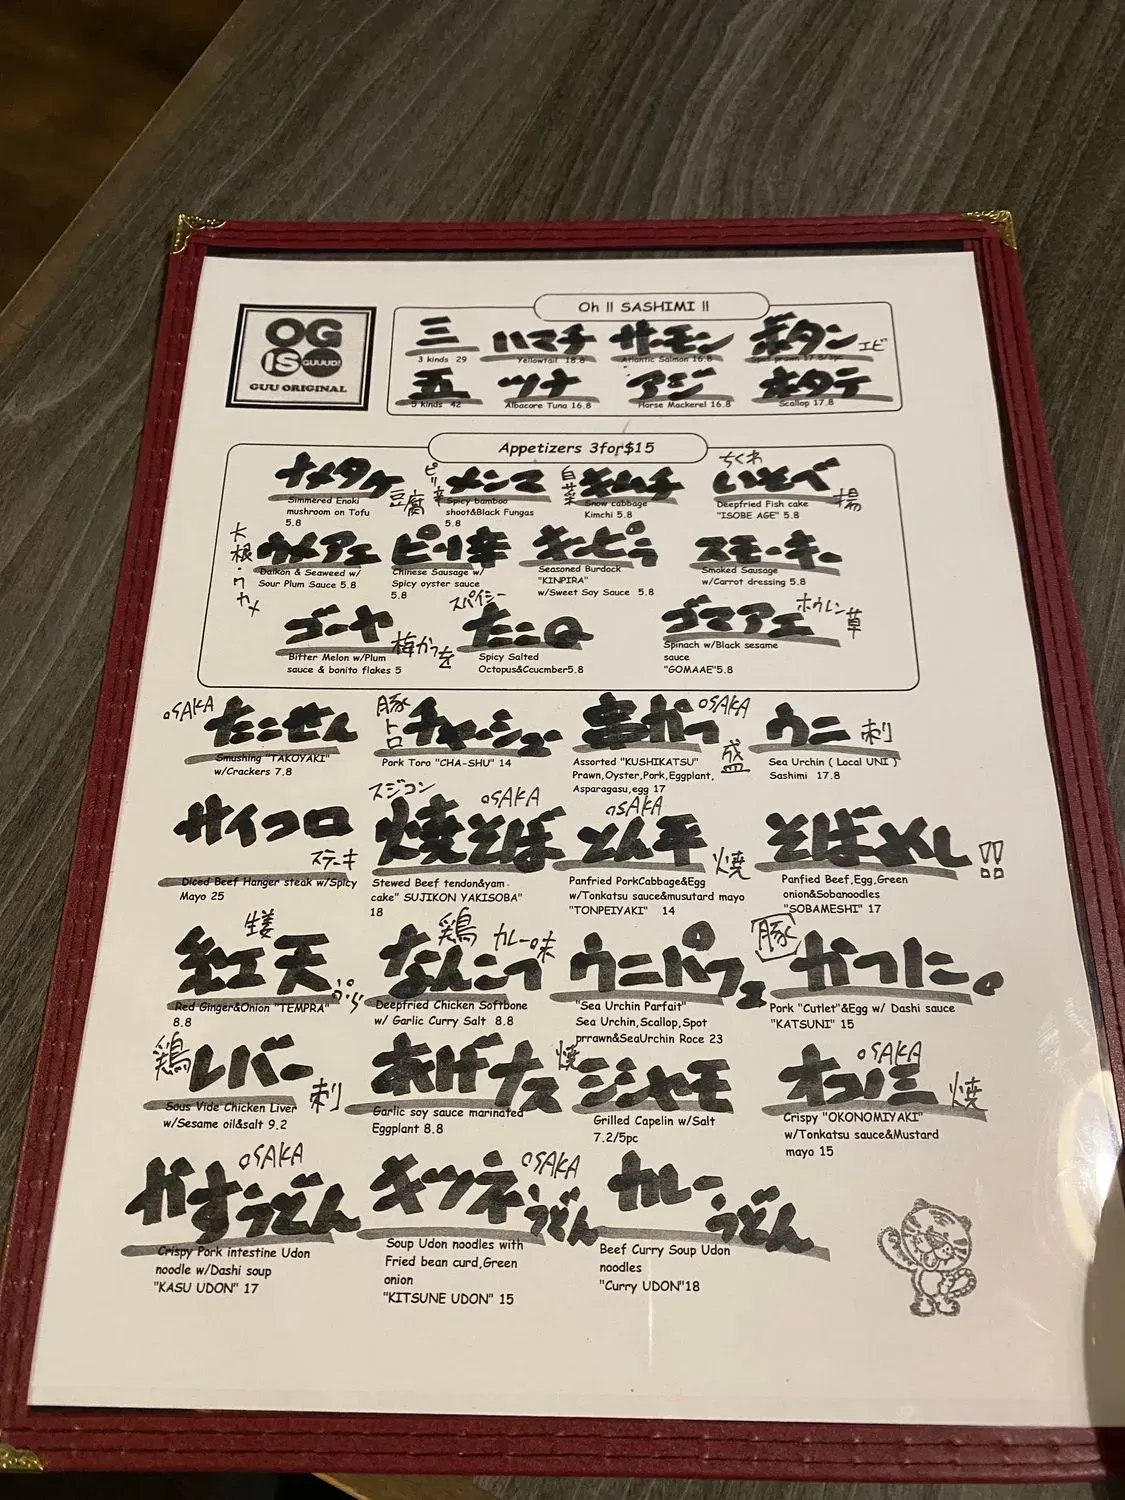 OG
IS GUUUD!
GUU ORIGINAL
Oh !! SASHIMI !!
三
3 kinds 29
ハマチ
Yellowtail 18.8
サーモン
Atlantic Salmon 16.8
ボタンエビ
Spot prawn 17.8/3pc
五
5 kinds 42
ツナ
Albacore Tuna 16.8
アジ
Horse Mackerel 16.8
ホタテ
Scallop 17.8
Appetizers 3for$15
ナメタケ豆腐
Simmered Enoki
mushroom on Tofu
5.8
ピリ辛メンマ
Spicy bamboo
shoot&Black Fungas
5.8
白菜キムチ
Snow cabbage
Kimchi 5.8
ちくわ
いそべ揚
Deepfried Fish cake
"ISOBE AGE" 5.8
大根・ワカメ
ウメアエ
Daikon & Seaweed w/
Sour Plum Sauce 5.8
ピリ辛
Chinese Sausage w/
Spicy oyster sauce
5.8
キンピラ
Seasoned Burdock
"KINPIRA"
w/Sweet Soy Sauce 5.8
スモーキー
Smoked Sausage
w/Carrot dressing 5.8
ゴーヤ梅かつを
Bitter Melon w/Plum
sauce & bonito flakes 5
スパイシー
たこQ
Spicy Salted
Octopus&Ccucmber5.8
ゴマアエ
ホウレン草
Spinach w/Black sesame
sauce
"GOMAAE"5.8
OSAKA
たこせん
Smushing "TAKOYAKI"
w/Crackers 7.8
豚トロ
チャーシュー
Pork Toro "CHA-SHU" 14
串かつ盛
OSAKA
Assorted "KUSHIKATSU"
Prawn,Oyster,Pork,Eggplant,
Asparagasu,egg 17
ウニ刺
Sea Urchin ( Local UNI )
Sashimi 17.8
サイコロ
ステーキ
Diced Beef Hanger steak w/Spicy
Mayo 25
スジコン
OSAKA
焼そば
Stewed Beef tendon&yam
cake" SUJIKON YAKISOBA"
18
OSAKA
とん平焼
Panfried PorkCabbage&Egg
w/Tonkatsu sauce&musutard mayo
"TONPEIYAKI" 14
そばめし!!
Panfied Beef,Egg,Green
onion&Sobanoodles
"SOBAMESHI" 17
生姜
紅天
ぷら
Red Ginger&Onion "TEMPRA"
8.8
鶏
なんこつ
カレー味
Deepfried Chicken Softbone
w/ Garlic Curry Salt 8.8
ウニパフェ
"Sea Urchin Parfait"
Sea Urchin,Scallop,Spot
prrawn&SeaUrchin Roce 23
豚
かつに。
Pork "Cutlet"&Egg w/ Dashi sauce
"KATSUNI" 15
鶏レバー刺
Sous Vide Chicken Liver
w/Sesame oil&salt 9.2
あげナス
Garlic soy sauce marinated
Eggplant 8.8
焼シシャモ
Grilled Capelin w/Salt
7.2/5pc
OSAKA
オコノミ焼
Crispy "OKONOMIYAKI"
w/Tonkatsu sauce&Mustard
mayo 15
OSAKA
かすうどん
Crispy Pork intestine Udon
noodle w/Dashi soup
"KASU UDON" 17
OSAKA
キツネうどん
Soup Udon noodles with
Fried bean curd,Green
onion
"KITSUNE UDON" 15
カレーうどん
Beef Curry Soup Udon
noodles
"Curry UDON"18